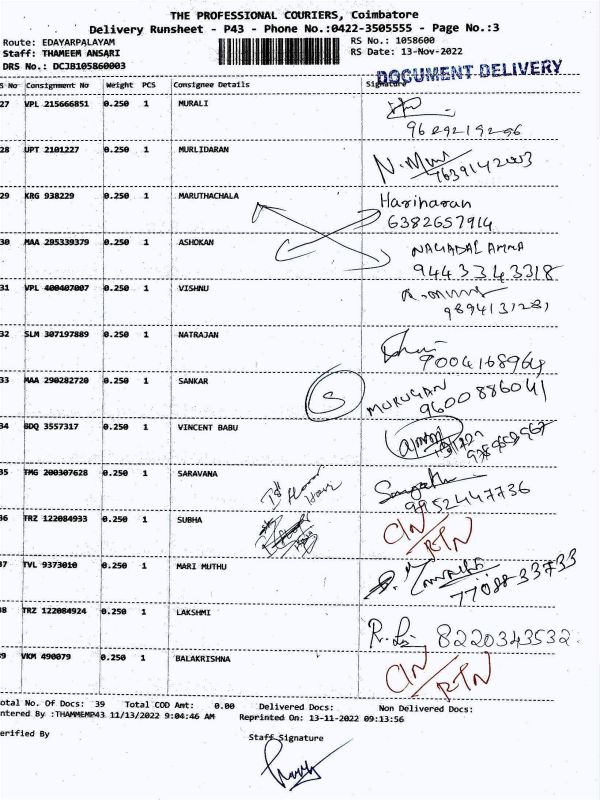 THE PROFESSIONAL COURIERS, Coimbatore
Delivery Runsheet - P43 - Phone No.:0422-3505555 - Page No.:3
Route: EDAYARPALAYAM RS No.: 1058600
Staff: THAMEEM ANSARI RS Date: 13-Nov-2022
DRS No.: DCJB105860003
DOCUMENT DELIVERY
S No Consignment No Weight PCS Consignee Details Signature
27 VPL 215666851 0.250 1 MURALI
9629219296
28 UPT 2101227 0.250 1 MURLIDARAN
7639142003
29 KRG 938229 0.250 1 MARUTHACHALA Hariharan
6382657914
30 MAA 295339379 0.250 1 ASHOKAN NAGADAL AMMA
9443343318
31 VPL 400407007 0.250 1 VISHNU
9894131281
32 SLM 307197889 0.250 1 NATRAJAN
9004168964
33 MAA 290282720 0.250 1 SANKAR S MURUGAN
9600886041
34 BDQ 3557317 0.250 1 VINCENT BABU
35 TMG 200307628 0.250 1 SARAVANA
9952447736
36 TRZ 122084933 0.250 1 SUBHA CIN
RTN
37 TVL 9373010 0.250 1 MARI MUTHU
7708833733
38 TRZ 122084924 0.250 1 LAKSHMI 8220343532
39 VKM 490079 0.250 1 BALAKRISHNA CIN
RTN
otal No. Of Docs: 39 Total COD Amt: 0.00 Delivered Docs: Non Delivered Docs:
ntered By :THAMMEMP43 11/13/2022 9:04:46 AM Reprinted On: 13-11-2022 09:13:56
erified By Staff Signature